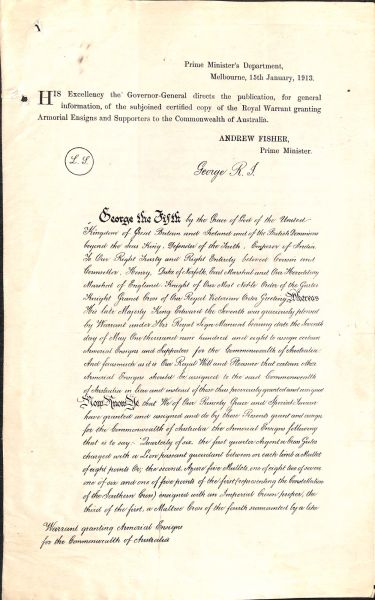 Prime Minister's Department,
Melbourne, 15th January, 1913.
HIS Excellency the Governor-General directs the publication, for general
information, of the subjoined certified copy of the Royal Warrant granting
Armorial Ensigns and Supporters to the Commonwealth of Australia.
ANDREW FISHER,
Prime Minister.
L. S
George R. I.
George the Fifth by the Grace of God of the United
Kingdom of Great Britain and Ireland and of the British Dominions
beyond the Seas King, Defender of the Faith, Emperor of India
To Our Right Trusty and Right Entirely beloved Cousin and
Counsellor, Henry, Duke of Norfolk, Earl Marshal and Our Hereditary
Marshal of England, Knight of Our Most Noble Order of the Garter
Knight Grand Cross of Our Royal Victorian Order Greeting, Whereas
His late Majesty King Edward the Seventh was graciously pleased
by Warrant under His Royal Sign Manual bearing date the Seventh
day of May One thousand nine hundred and eight to assign certain
Armorial Ensigns and Supporters for the Commonwealth of Australia
And forasmuch as it is Our Royal Will and Pleasure that certain other
Armorial Ensigns should be assigned to the said Commonwealth
of Australia in lieu and instead of those thus previously granted and assigned
Now Know Ye that We of Our Princely Grace and Special Favour
have granted and assigned and do by these Presents grant and assign
for the Commonwealth of Australia the Armorial Ensigns following
that is to say:- Quarterly of six, the first quarter Argent a Cross Gules
charged with a Lion passant guardant between on each limb a Mullet
of eight points Or; the second Azure five Mullets, one of eight, two of seven
one of six and one of five points of the first (representing the Constellation
of the Southern Cross) ensigned with an Imperial Crown proper; the
third of the first, a Maltese Cross of the fourth surmounted by a like
Warrant granting Armorial Ensigns
for the Commonwealth of Australia